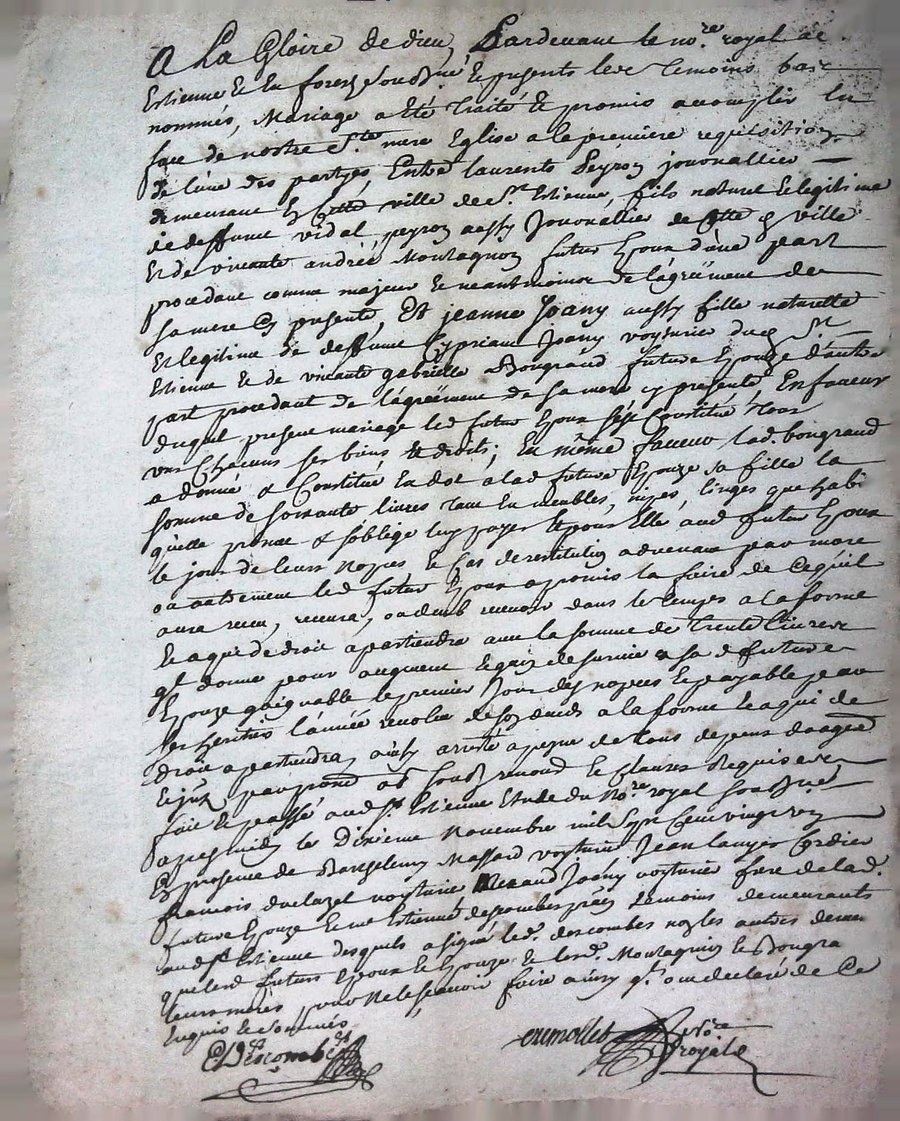 A La Gloire de dieu, Pardevant le no.re royal de
Estienne En forest soubs.né Et présents les Temoins bas
nommés, Mariage a Eté Traité Et promis accomplir En
face de nostre S.te mere Eglise a la premiere requisition
de l'une des partyes, Entre laurents Peyron journallier
demeurant En Cette ville de S.t Estienne, fils naturel & legitime
de deffunt vidal peyron aussy Journallier de Cette ville
Et de vivante andrée Montagnon futur Epoux d'une part
procedant comme majeur Et neantmoins de l'agréement de
sa mere Cy presente, Et jeanne Joany aussy fille naturelle
Et legitime de deffunt Cyprian Joany voyturié du S.t
Estienne Et de vivante gabrielle Bougrand future Epouze d'autre
part procedant de l'agréement de sa mere cy presente En faveur
duquel present mariage led futur Epoux s'est Constitué Tous
uns Chacuns ses biens & droits; En même faveur lad. bougrand
a donné & Constitué En dot a lad future Epouze sa fille la
somme de soixante livres Tant En meubles, linges que habi
qu'elle promet & s'oblige luy payer Et pour Elle aud futur Epoux
le jour de leurs nopces le Cas de restitution advenant par mort
ou autrement led futur Epoux a promis la faire de Ce qu'il
aura receu, ou deub recevoir dans le temps a la forme
Et a qui de droit apartiendra avec la somme de Trente livres
q.l donne pour augment Et gain de survie a sad future
Epouze gaignable le premier Jour des nopces Et payable par
ses heritiers l'année revolue de son deceds a la forme Et a qui de
droit apartiendra, ainsy arresté a peyne de Tous depens
fait Et passé aud S.t Estienne Etude du No.re royal soubs.né
apres midy le Dixieme Novembre mil Sept Cent vingt
En presence de Barthelemy Massard voyturié Jean Cordier
francois duclozel voyturié Joany voyturié frere de lad.
future Epouze Et me Estienne descombes Temoins demeurants
aud S.t Estienne desquels a signé led. descombes non les autres
que lesd futurs Epoux Et Epouze & lesd. Montagnon Et Bougra
leurs meres pour Ne le scavoir faire ainsy q.ls ont declaré de Ce
Enquis Et sommés
E Descombes
crumollet No.re
royal